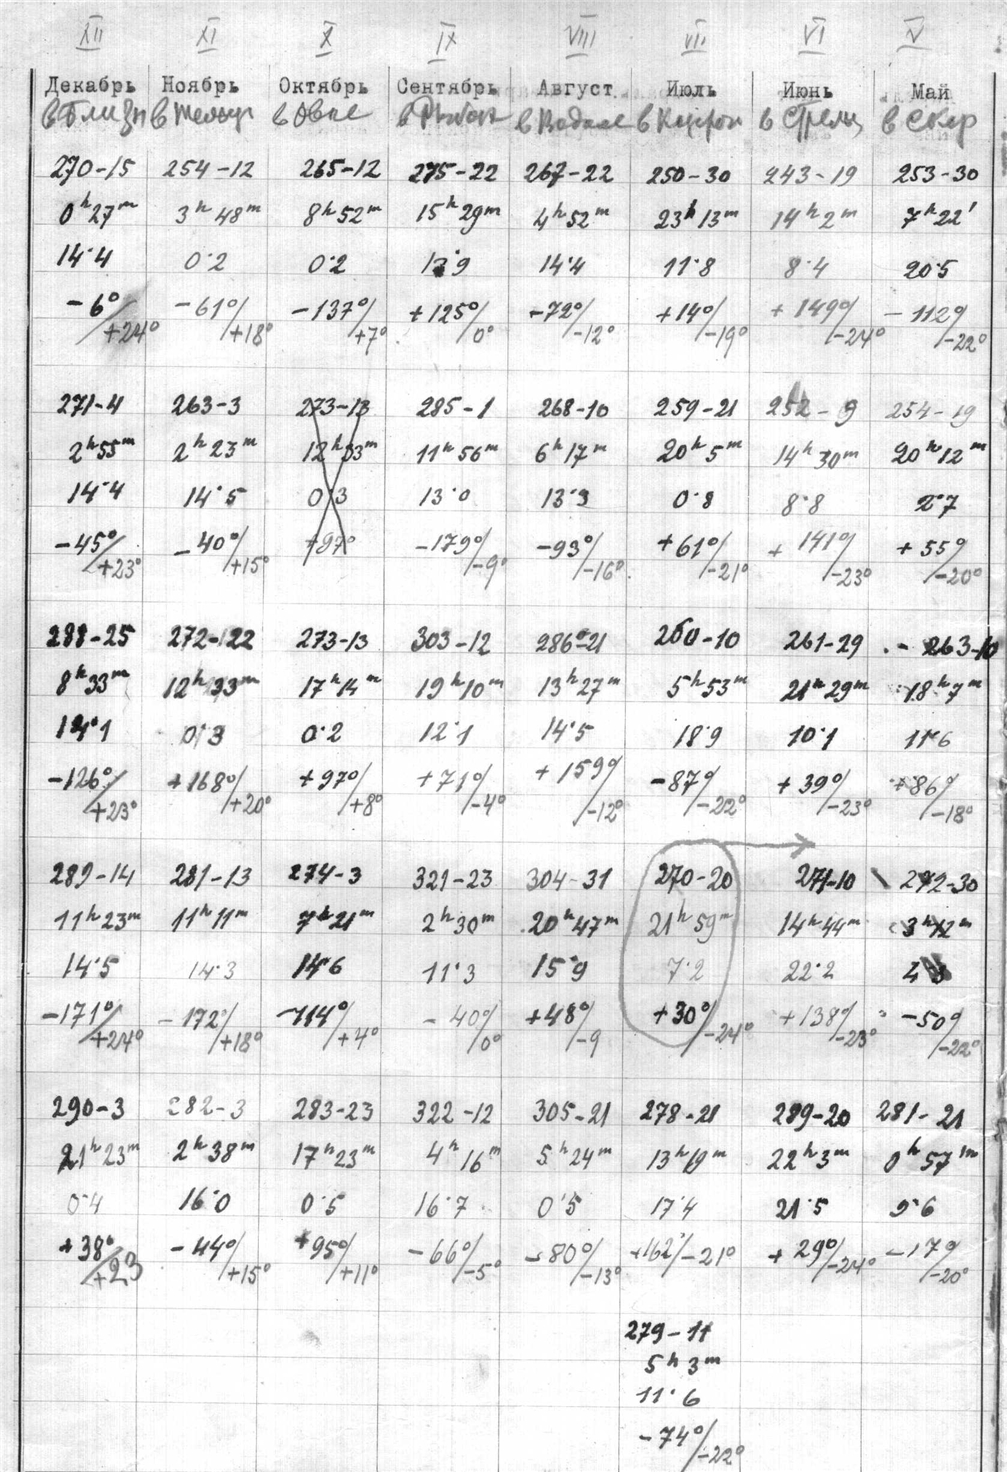 XII XI X IX VIII VII VI V
Декабрь Ноябрь Октябрь Сентябрь Август Июль Июнь Май
в Близн в Тельце в Овне в Рыбах в Водоле в Козрог в Стрелц в Скор
270-15 254-12 265-12 275-22 267-22 250-30 243-19 253-30
0h27m 3h48m 8h52m 15h29m 4h52m 23h13m 14h2m 7h22'
14·4 0·2 0·2 13·9 14·4 11·8 8·4 20·5
-6°/+24° -61°/+18° -137°/+7° +125°/0° -72°/-12° +14°/-19° +149°/-24° -112°/-22°
271-4 263-3 273-13 285-1 268-10 259-21 252-9 254-19
2h55m 2h23m 12h33m 11h56m 6h17m 20h5m 14h30m 20h12m
14·4 14·5 0·3 13·0 13·3 0·8 8·8 2·7
-45°/+23° -40°/+15° +97° -179°/-9° -93°/-16° +61°/-21° +141°/-23° +55°/-20°
288-25 272-22 273-13 303-12 286-21 260-10 261-29 263-10
8h33m 12h33m 17h14m 19h10m 13h27m 5h53m 21h29m 18h7m
14·1 0·3 0·2 12·1 14·5 18·9 10·1 11·6
-126°/+23° +168°/+20° +97°/+8° +71°/-4° +159°/-12° -87°/-22° +39°/-23° +86°/-18°
289-14 281-13 274-3 321-23 304-31 270-20 271-10 272-30
11h23m 11h11m 7h21m 2h30m 20h47m 21h59m 14h44m 3h12m
14·5 14·3 14·6 11·3 15·9 7·2 22·2
-171°/+24° -172°/+18° -114°/+4° -40°/0° +48°/-9 +30°/-24° +138°/-23° -50°/-22°
290-3 282-3 283-23 322-12 305-21 278-21 289-20 281-21
21h23m 2h38m 17h23m 4h16m 5h24m 13h19m 22h3m 0h57m
0·4 16·0 0·5 16·7 0·5 17·4 21·5 9·6
+38°/+23 -44°/+15° +95°/+11° -66°/-5° -80°/-13° +162°/-21° +29°/-24° -17°/-20°
279-11
5h3m
11·6
-74°/-22°